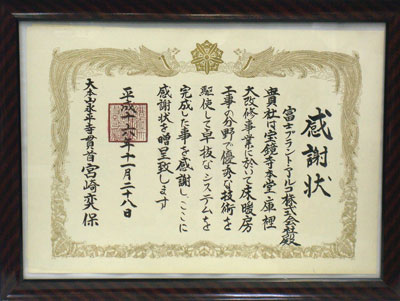 感謝状
富士プラントアルコ株式会社殿
貴社は宝鏡寺本堂庫裡
大改修事業に於いて床暖房
工事の分野で優秀な技術を
駆使して卓抜なシステムを
完成した事を感謝しここに
感謝状を贈呈致します
平成十六年十一月二十八日
大本山永平寺貫首宮崎奕保